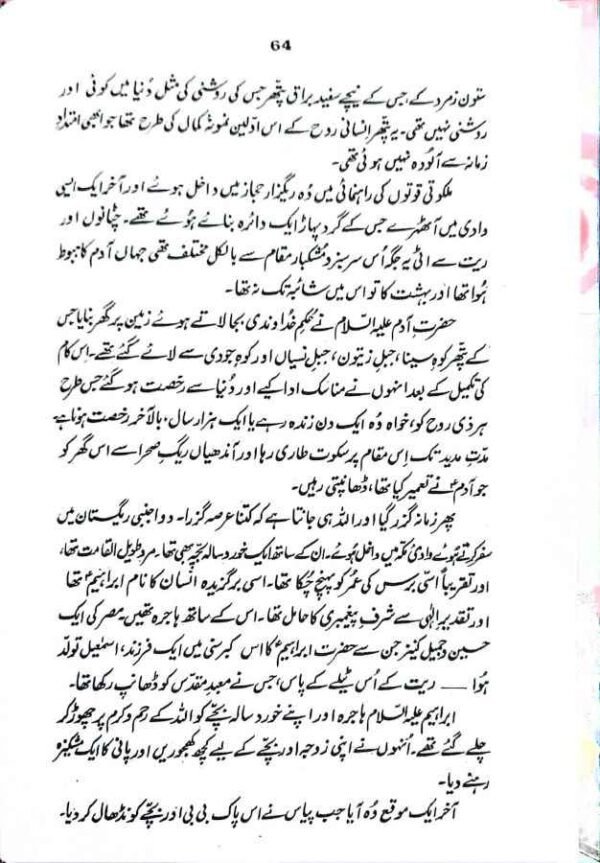 64
ستون زمرد کے، جس کے نیچے سفید براق پتھر جس کی روشنی کی مثل دُنیا میں کوئی اور
روشنی نہیں تھی۔ یہ پتھر انسانی روح کے اس اوّلین نمونۂ کمال کی طرح تھا جو ابھی امتدادِ
زمانہ سے آلودہ نہیں ہوئی تھی۔
ملکوتی قوتوں کی راہنمائی میں وُہ ریگزارِ حجاز میں داخل ہوئے اور آخر ایک ایسی
وادی میں آ ٹھہرے جس کے گرد پہاڑ ایک دائرہ بنائے ہُوئے تھے۔ چٹانوں اور
ریت سے اٹی یہ جگہ اُس سرسبز و مُشکبار مقام سے بالکل مختلف تھی جہاں آدم کا ہبوط
ہُوا تھا اور بہشت کا تو اس میں شائبہ تک نہ تھا۔
حضرت آدم علیہ السّلام نے حُکمِ خداوندی بجا لاتے ہوئے زمین پر گھر بنایا جس
کے پتھر کوہِ سینا، جبلِ زیتون، جبلِ نسیاں اور کوہِ جودی سے لائے گئے تھے۔ اِس کام
کی تکمیل کے بعد انہوں نے مناسک ادا کیے اور دُنیا سے رخصت ہو گئے جس طرح
ہر ذی روح کو، خواہ وُہ ایک دن زندہ رہے یا ایک ہزار سال، بالآخر رخصت ہونا ہے
مدّتِ مدید تک اِس مقام پر سکوت طاری رہا اور آندھیاں ریگِ صحرا سے اس گھر کو
جو آدمؑ نے تعمیر کیا تھا، ڈھانپتی رہیں۔
پھر زمانہ گزر گیا اور اللہ ہی جانتا ہے کہ کتنا عرصہ گزرا۔ دو اجنبی ریگستان میں
سفر کرتے ہُوئے وادیٔ مکّہ میں داخل ہُوئے۔ ان کے ساتھ ایک خورد سالہ بچّہ بھی تھا۔ مرد طویل القامت تھا،
اور تقریباً اسّی برس کی عُمر کو پہنچ چُکا تھا۔ اسی برگزیدہ انسان کا نام ابراہیمؑ تھا
اور تقدیرِ الٰہی سے شرفِ پیغمبری کا حامل تھا۔ اس کے ساتھ ہاجرہ تھیں۔ مصر کی ایک
حسین و جمیل کنیز جن سے حضرت ابراہیمؑ کا اس کبرسنی میں ایک فرزند، اسمٰعیل تولّد
ہُوا ــــ ریت کے اُس ٹیلے کے پاس، جس نے معبدِ مقدّس کو ڈھانپ رکھا تھا۔
ابراہیم علیہ السّلام ہاجرہ اور اپنے خورد سالہ بچّے کو اللہ کے رحم و کرم پر چھوڑ کر
چلے گئے تھے۔ اُنہوں نے اپنی زوجہ اور بچّے کے لیے کچھ کھجوریں اور پانی کا ایک مشکیزہ
رہنے دیا۔
آخر ایک موقع وُہ آیا جب پیاس نے اس پاک بی بی اور بچّے کو نڈھال کر دیا۔